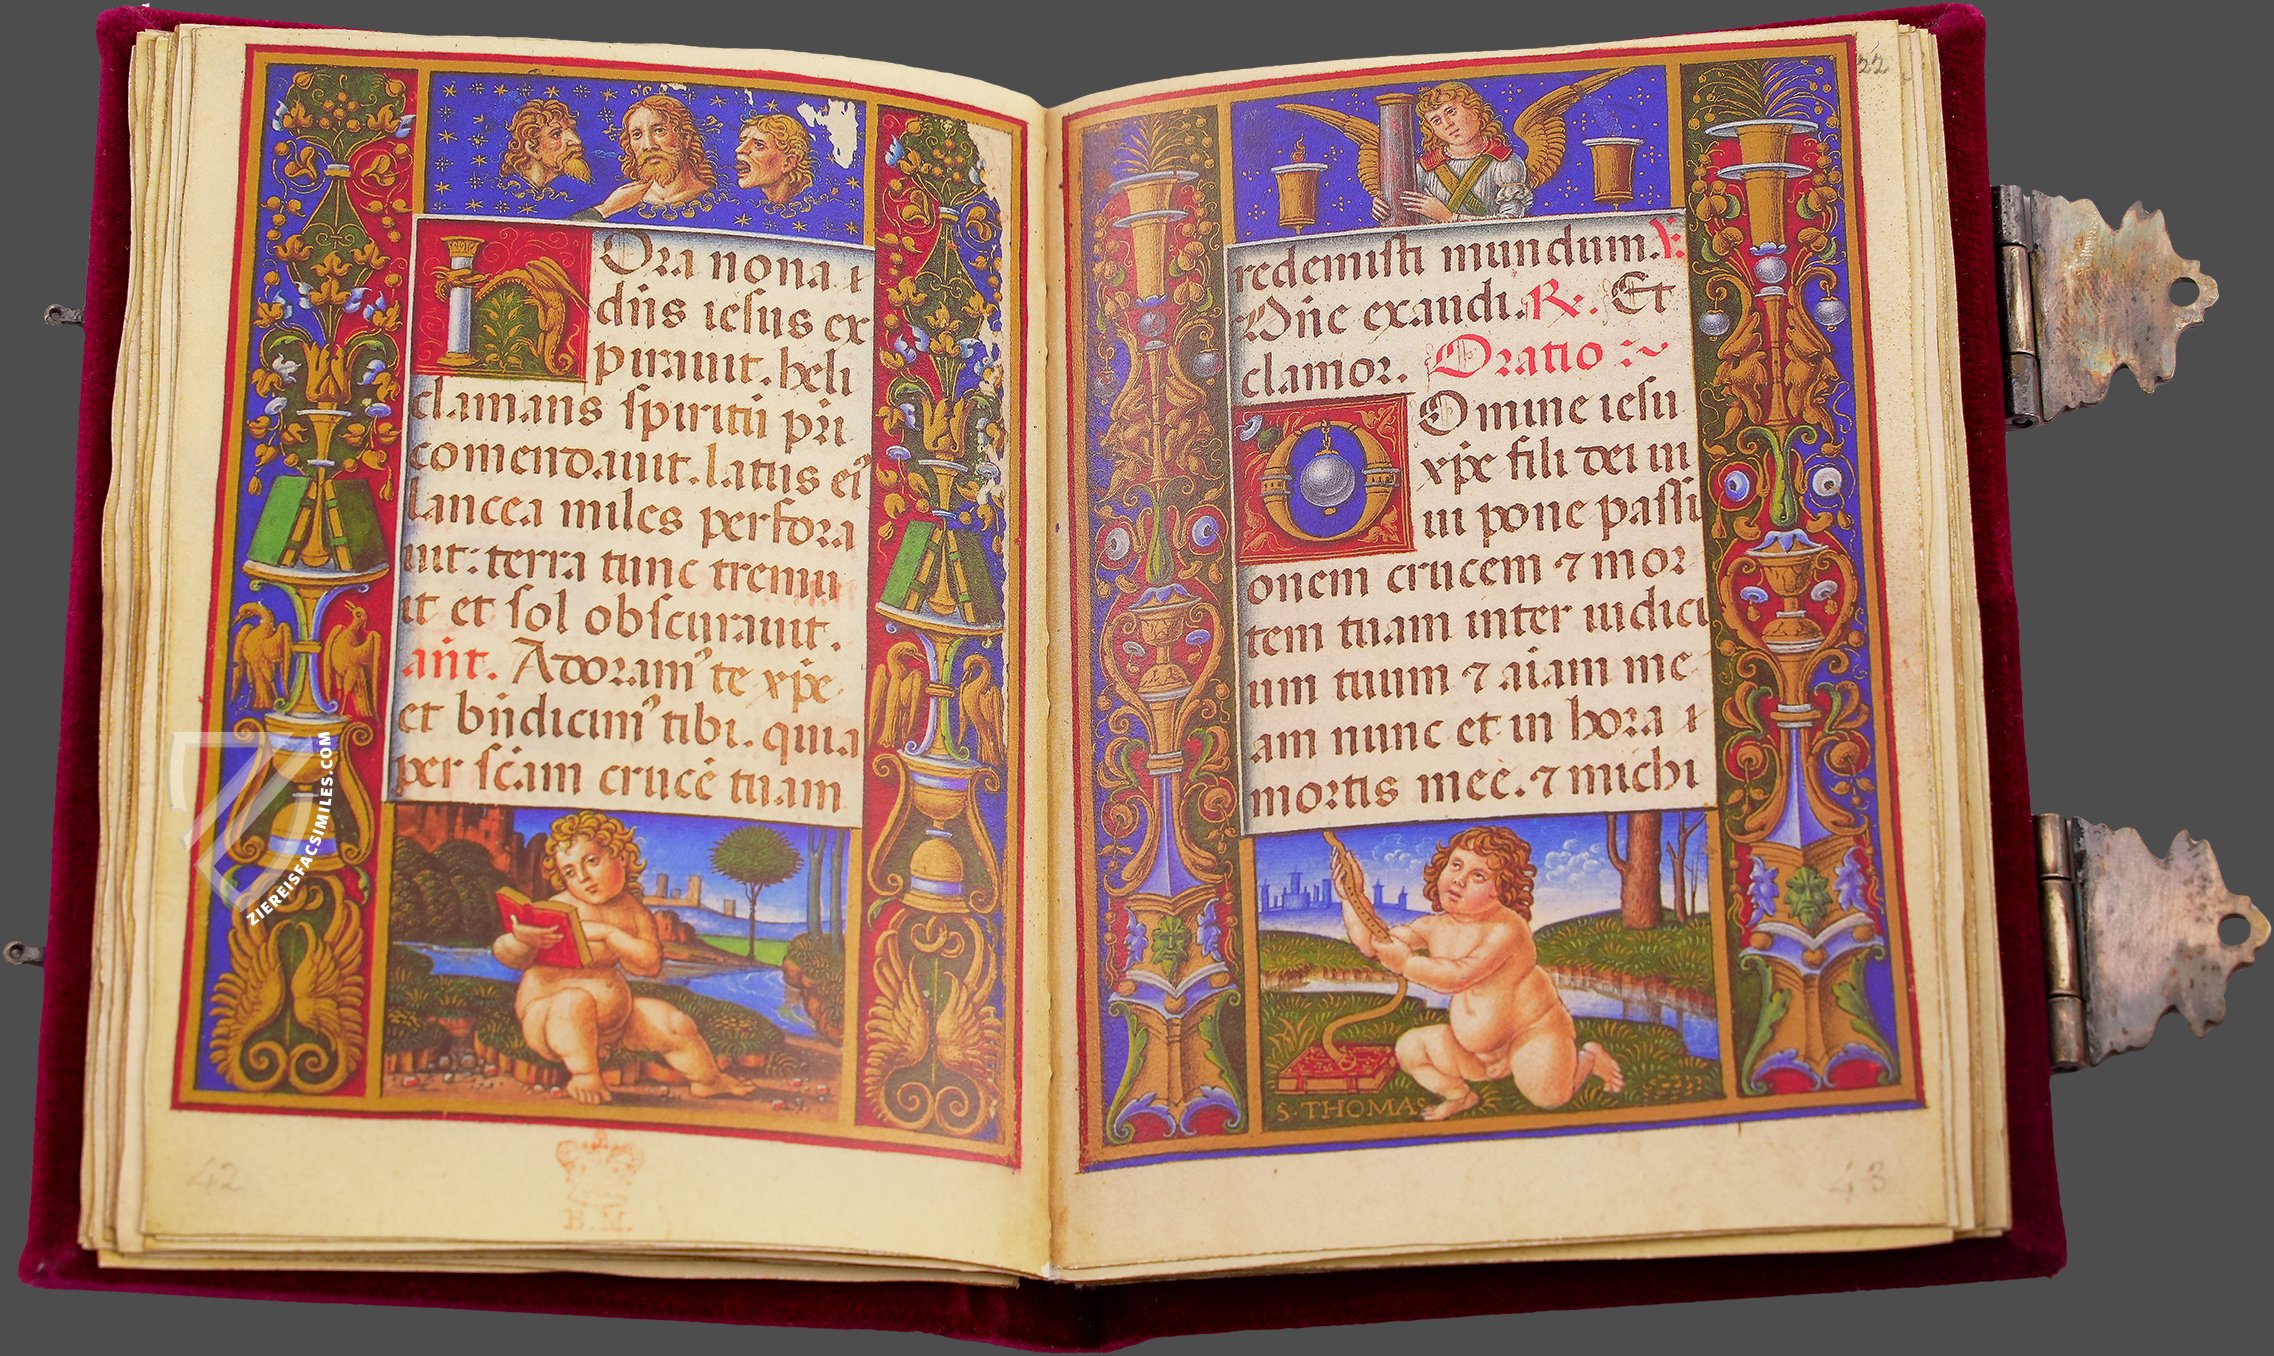 Ora nona ı
dn̄s iesus ex
pirauit. heli
clamans spiritū pr̄i
comendauit. latus ei᾽
lancea miles perfora
uit: terra tunc tremu
it et sol obscurauit.
an̄t. Adoram᾽ te xp̄e
et bn̄dicim᾽ tibi. quia
per sc̄am crucē tuam
42
B. M.
ZIEREISFACSIMILES.COM
22
redemisti mundum. V:
Dn̄e exaudi. R. Et
clamor. Oratio
Omine iesu
xp̄e fili dei ui
ui pone passi
onem crucem ⁊ mor
tem tuam inter iudici
um tuum ⁊ aīam me
am nunc et in hora ı
mortis mee. ⁊ michi
S. THOMAS
43